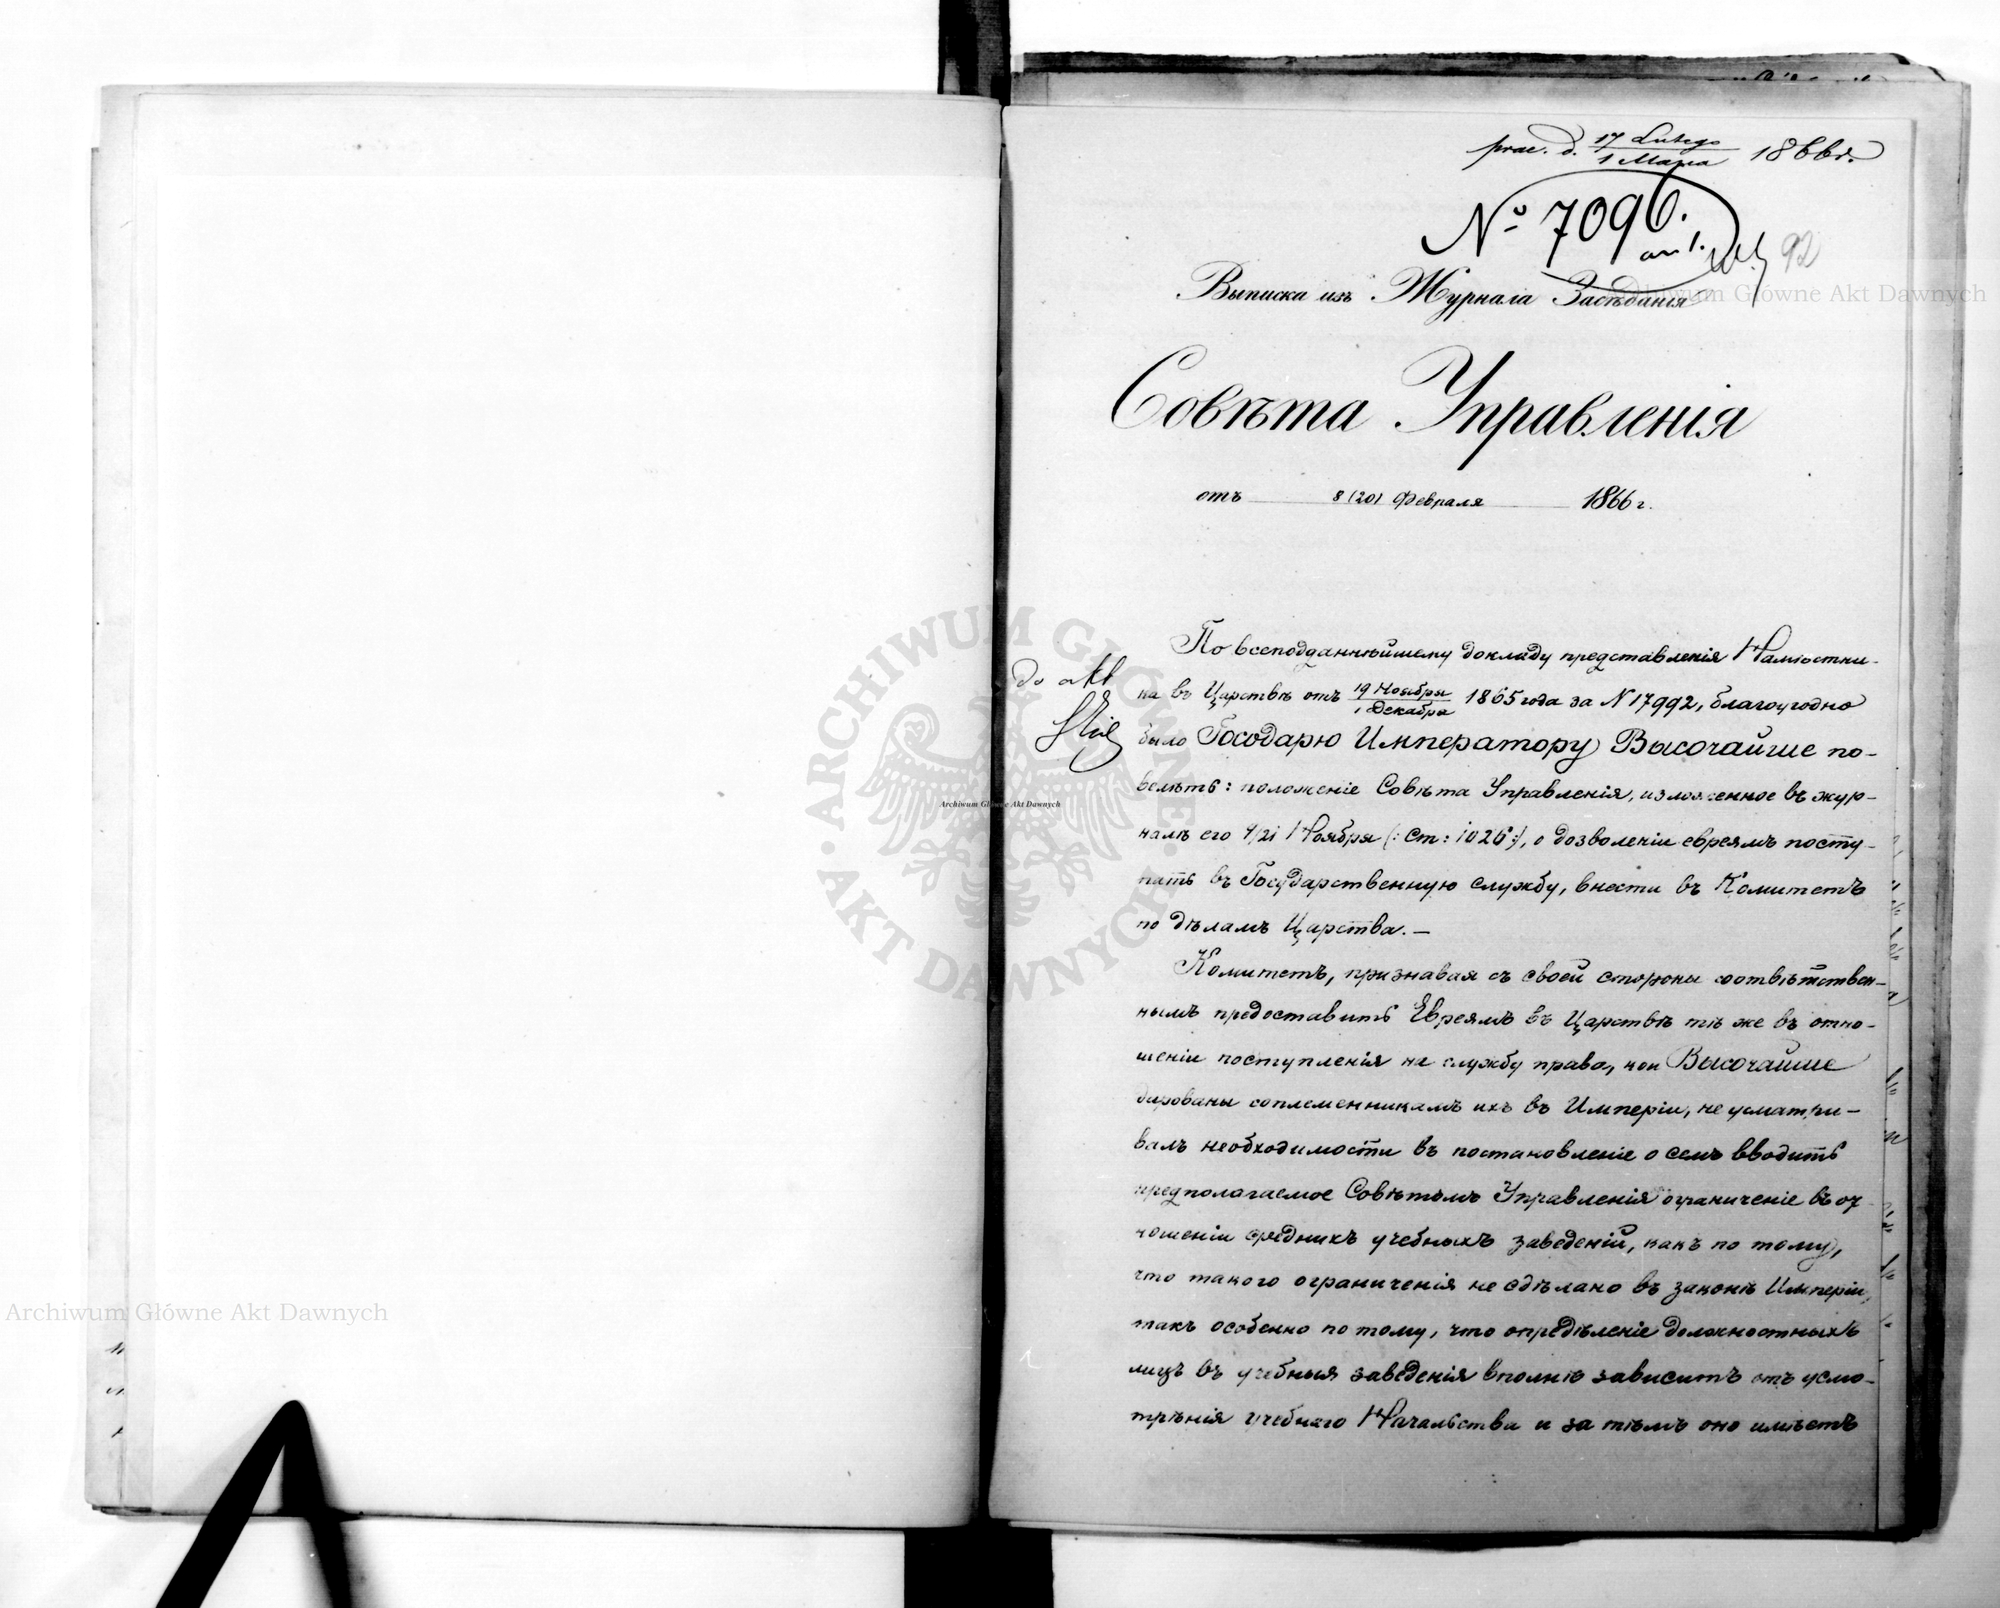 prae. d. 17 Lutego / 1 Marca 1866 r.
№ 7096.
92
Выписка изъ Журнала Засѣданія
Совѣта Управленія
отъ 8 (20) Февраля 1866 г.
По всеподданнѣйшему докладу представленія Намѣстни-
до akt
ка въ Царствѣ отъ 19 Ноября / 1 Декабря 1865 года за N 17992, благоугодно
было Государю Императору Высочайше по-
велѣть: положеніе Совѣта Управленія, изложенное въ жур-
налѣ его 9/21 Ноября (: ст: 1026 :), о дозволеніи евреямъ посту-
пать въ Государственную службу, внести въ Комитетъ
по дѣламъ Царства. —
Комитетъ, признавая съ своей стороны соотвѣтствен-
нымъ предоставить Евреямъ въ Царствѣ тѣ же въ отно-
шеніи поступленія на службу права, кои Высочайше
дарованы соплеменникамъ ихъ въ Имперіи, не усматри-
валъ необходимости въ постановленіе о семъ вводить
предполагаемое Совѣтомъ Управленія ограниченіе въ от-
ношеніи среднихъ учебныхъ заведеній, какъ по тому,
что такого ограниченія не сдѣлано въ законѣ Имперіи,
такъ особенно по тому, что опредѣленіе должностныхъ
лицъ въ учебныя заведенія вполнѣ зависитъ отъ усмо-
трѣнія учебнаго Начальства и за тѣмъ оно имѣетъ
Archiwum Główne Akt Dawnych
Archiwum Główne Akt Dawnych
Archiwum Główne Akt Dawnych
ARCHIWUM GŁÓWNE AKT DAWNYCH